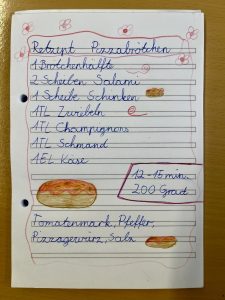 Retzept Pizzabrötchen
1 Brötchenhälfte
2 Scheiben Salami
1 Scheibe Schinken
1TL Zwiebeln
1TL Champignons
1TL Schmand
1EL Käse
12-15 min.
200 Grad
Tomatenmark, Pfeffer,
Pizzagewürz, Salz